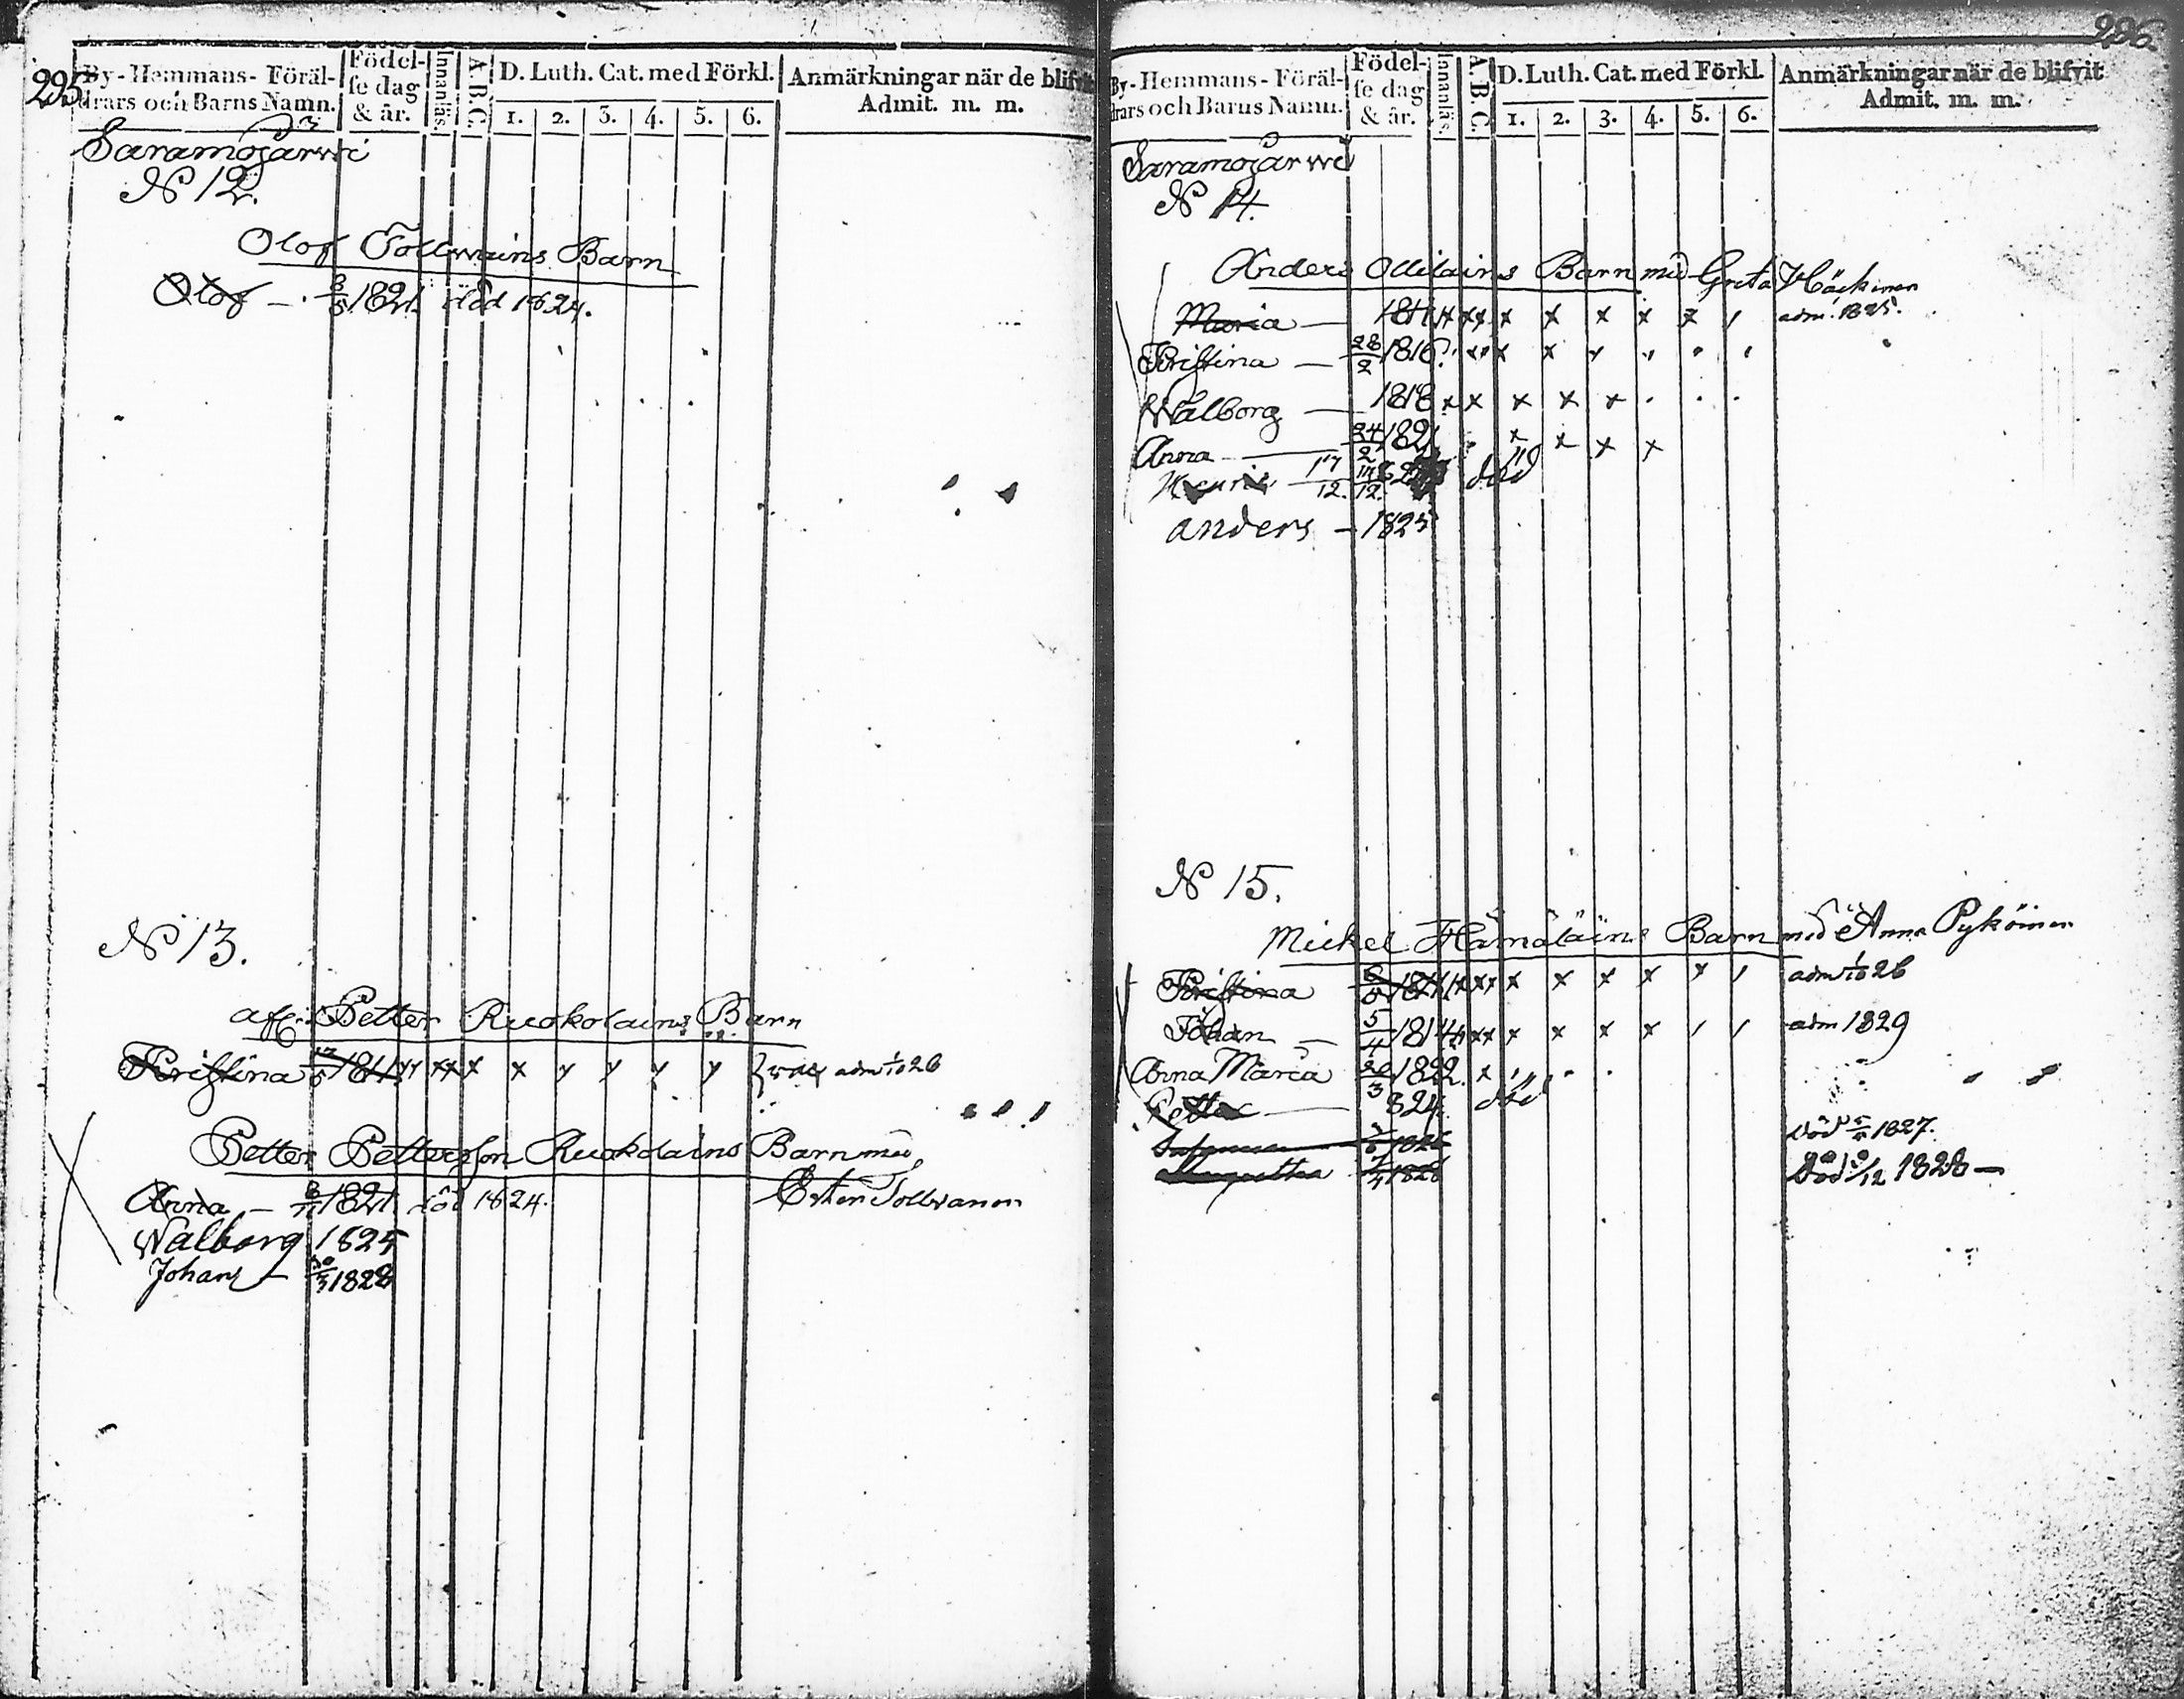 295
By-Hemmans-Föräl-
drars och Barns Namn.
Födel-
se dag
& år.
Innanläs.
A.B.C.
D. Luth. Cat. med Förkl.
1. 2. 3. 4. 5. 6.
Anmärkningar när de blifvit
Admit. m. m.
Saramojärwi
N 12.
Olof Tollwains Barn
Olof — 1821. död 1824.
N 13.
afl. Petter Ruokolains Barn
Kristina 1811 x x x x y y y y adm 1826
Petter Pettersson Ruokolains Barn med
Ester Tollvanen
Anna — 1821. död 1824.
Walborg 1825
Johan — 1828
296
By-Hemmans-Föräl-
drars och Barns Namn.
Födel-
se dag
& år.
Innanläs.
A.B.C.
D. Luth. Cat. med Förkl.
1. 2. 3. 4. 5. 6.
Anmärkningar när de blifvit
Admit. m. m.
Saramojärwi
N 14.
Anders Ollilains Barn med Greta Häckinen
Maria — 1811 x x x x x x x adm. 1825.
Kristina — 28/2 1816. x x
Walborg — 1818 x x x x x
Anna — 24/2 1821 x x x x
Henric 17/12. död
anders — 1825
N 15.
Mickel Hämäläins Barn med Anna Pyköinen
Kristina x x x x x x x x adm 1826
Johan — 5/4 1814 x x x x x x adm 1829
Anna Maria 1822. x
Petter — 824. död
1826 död 1827.
Margretha 1828 död 1828 —